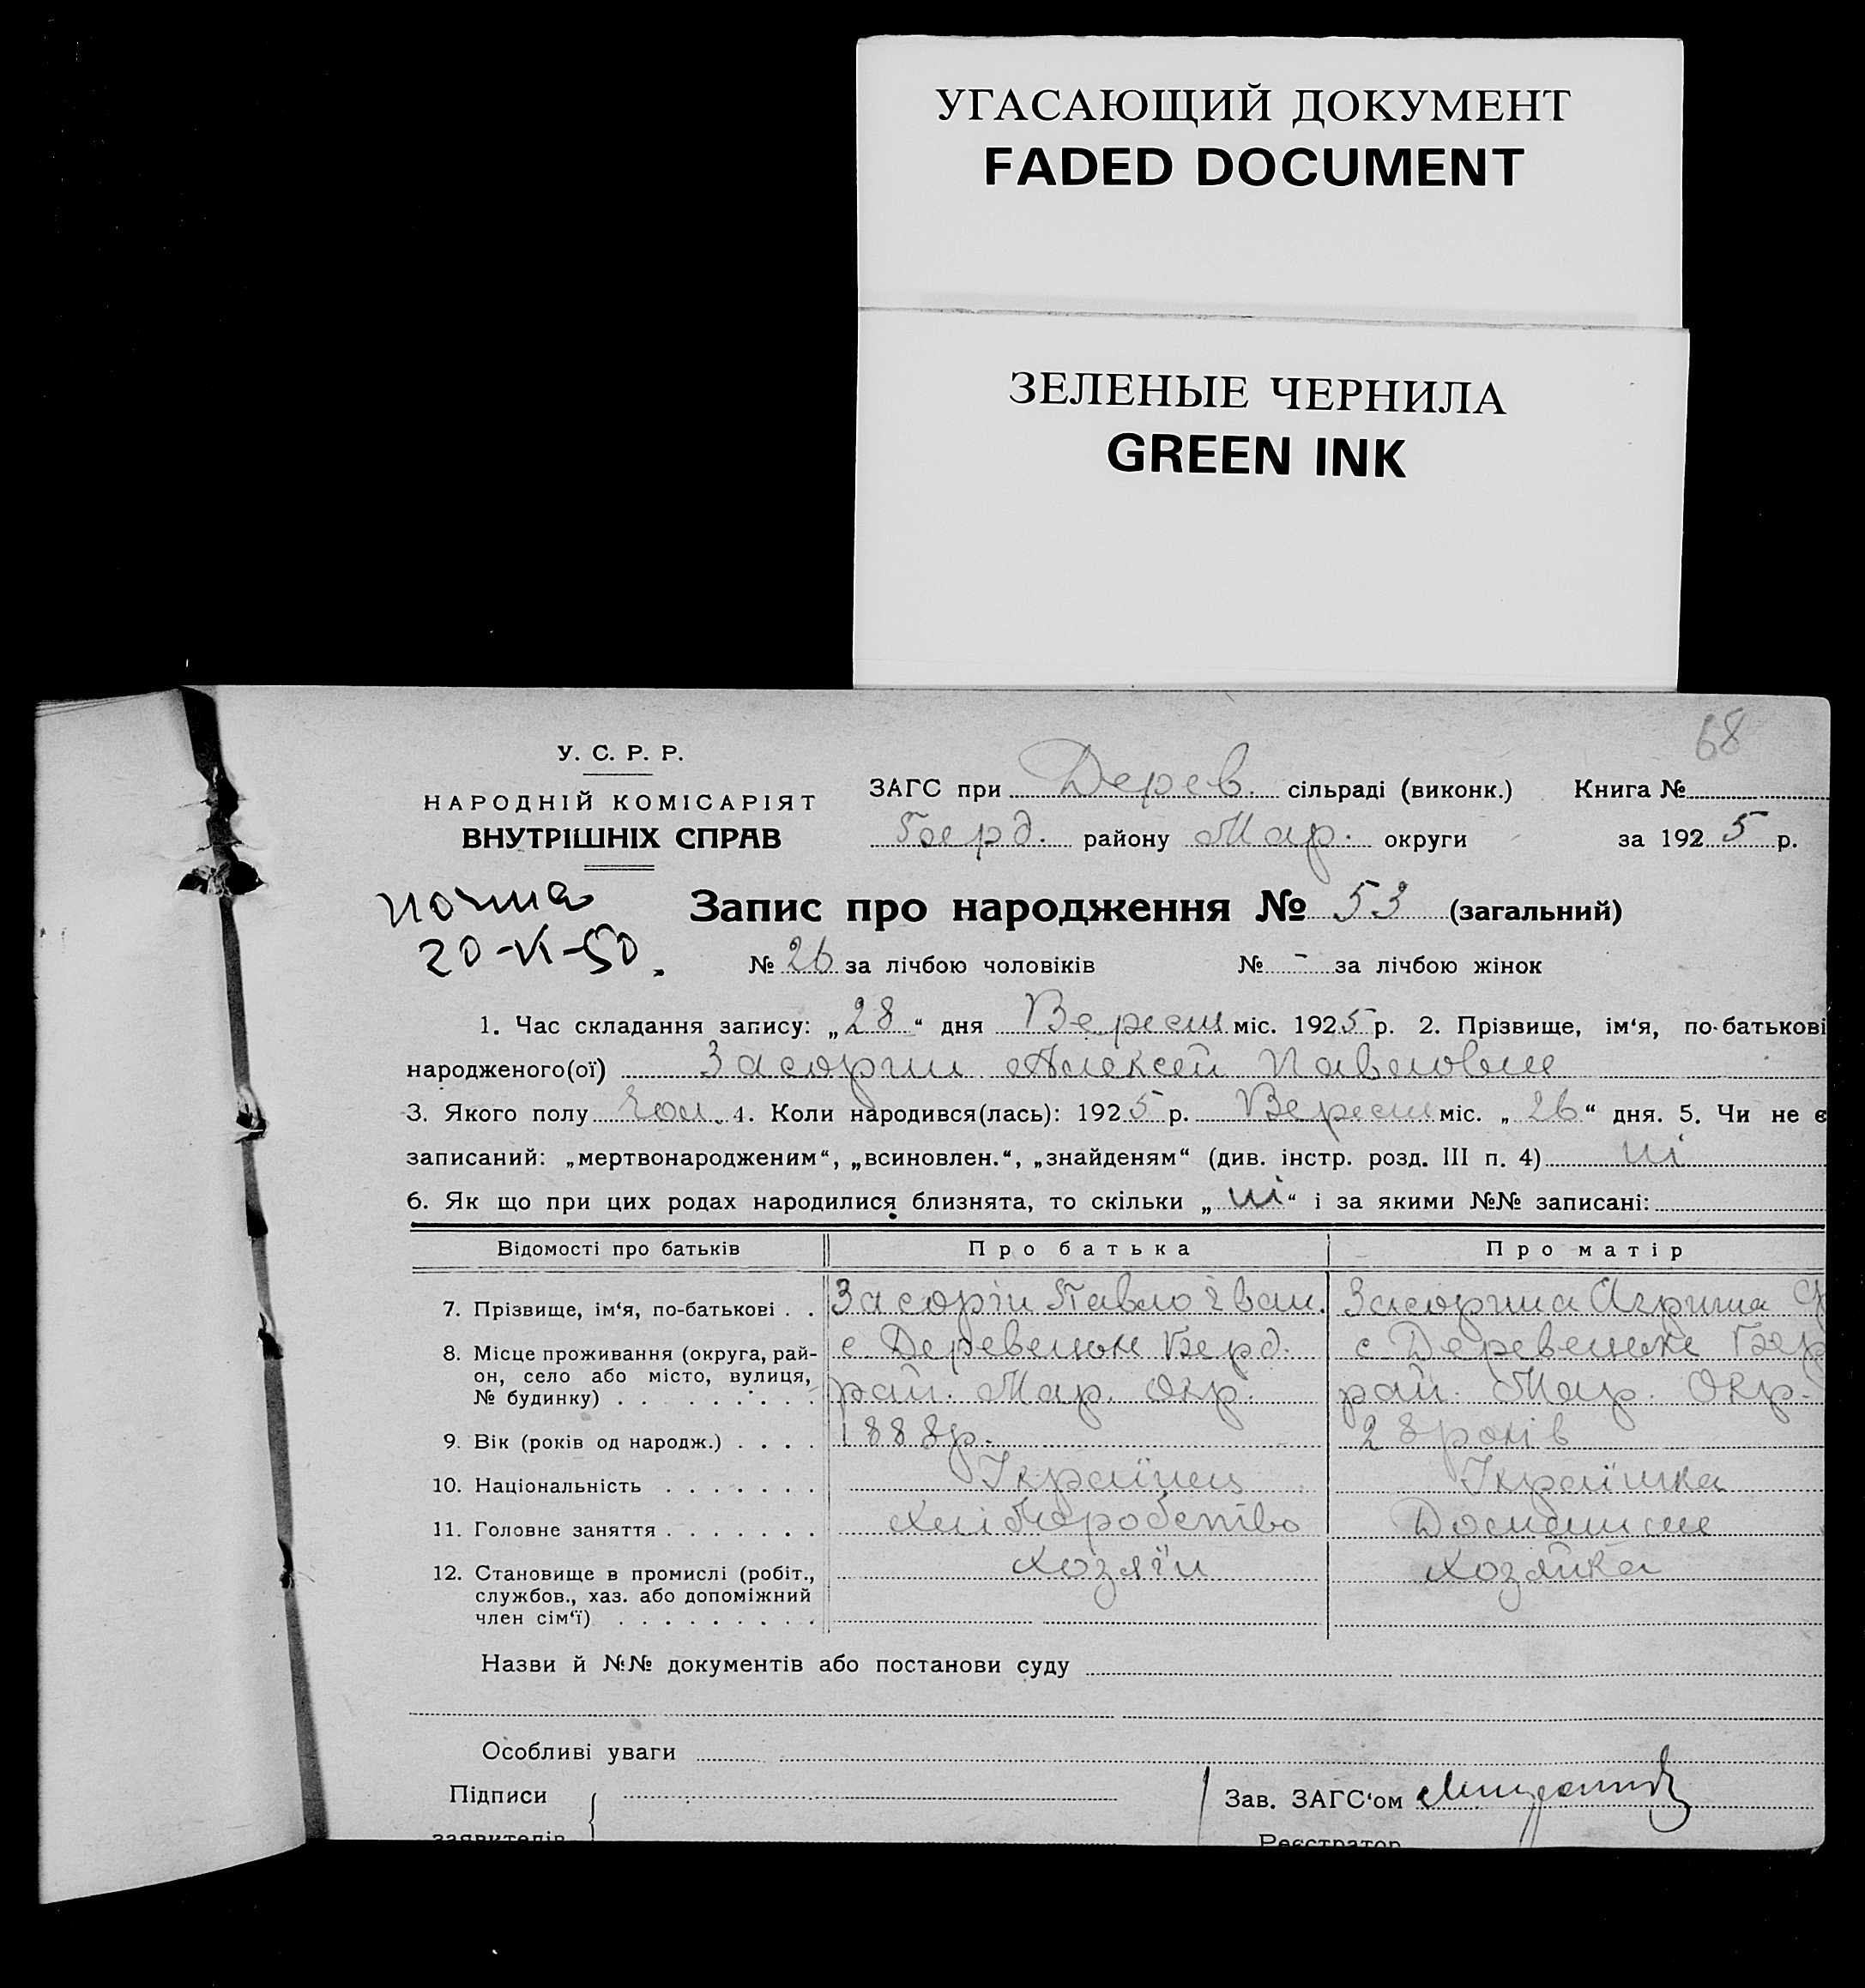 УГАСАЮЩИЙ ДОКУМЕНТ
FADED DOCUMENT
ЗЕЛЕНЫЕ ЧЕРНИЛА
GREEN INK
68
У. С. Р. Р.
НАРОДНІЙ КОМІСАРІЯТ
ВНУТРІШНІХ СПРАВ
ЗАГС при Дерев. сільраді (виконк.) Книга №
Берд. району Мар. округи за 1925 р.
20-VI-50.
Запис про народження № 53 (загальний)
№ 26 за лічбою чоловіків № - за лічбою жінок
1. Час складання запису: „28“ дня Вересн міс. 1925 р. 2. Прізвище, ім‘я, по-батькові
народженого(ої) Засорин Алексей Павлович
3. Якого полу Чол. 4. Коли народився(лась): 1925 р. Вересн міс. „26“ дня. 5. Чи не є
записаний: „мертвонародженим“, „всиновлен.“, „знайденям“ (див. інстр. розд. III п. 4) ні
6. Як що при цих родах народилися близнята, то скільки „ні“ і за якими №№ записані:
Відомості про батьків Про батька Про матір
7. Прізвище, ім‘я, по-батькові . . Засорін Павло Іван. Засорина
8. Місце проживання (округа, рай- с. Деревецьке Берд. с. Деревецьке Бер
он, село або місто, вулиця,
№ будинку) . . . . . . . . . рай. Мар. Окр. рай. Мар. Окр.
9. Вік (років од народж.) . . . . 1888р. 28 років
10. Національність . . . . . . . Українец Українка
11. Головне заняття . . . . . . . Хліборобство Домашнє
12. Становище в промислі (робіт., Хозяїн Хозяйка
службов., хаз. або допоміжний
член сім‘ї) . . . . . . . . .
Назви й №№ документів або постанови суду
Особливі уваги
Підписи Зав. ЗАГС‘ом
заявителів Реєстратор